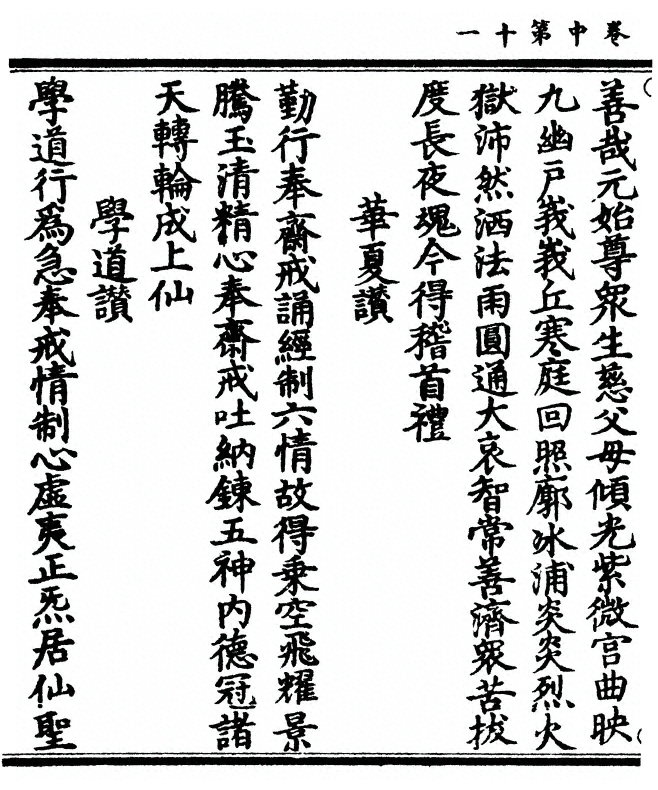 卷中第十一
善哉元始尊衆生慈父母傾光紫微宮曲映
九幽戶峩峩丘寒庭回照廓冰浦炎炎烈火
獄沛然洒法雨圓通大哀智常善濟衆苦拔
度長夜魂今得稽首禮
華夏讃
勤行奉齋戒誦經制六情故得乗空飛耀景
騰玉清精心奉齋戒吐納鍊五神內德冠諸
天轉輪成上仙
學道讃
學道行爲急奉戒情制心虛夷正炁居仙聖